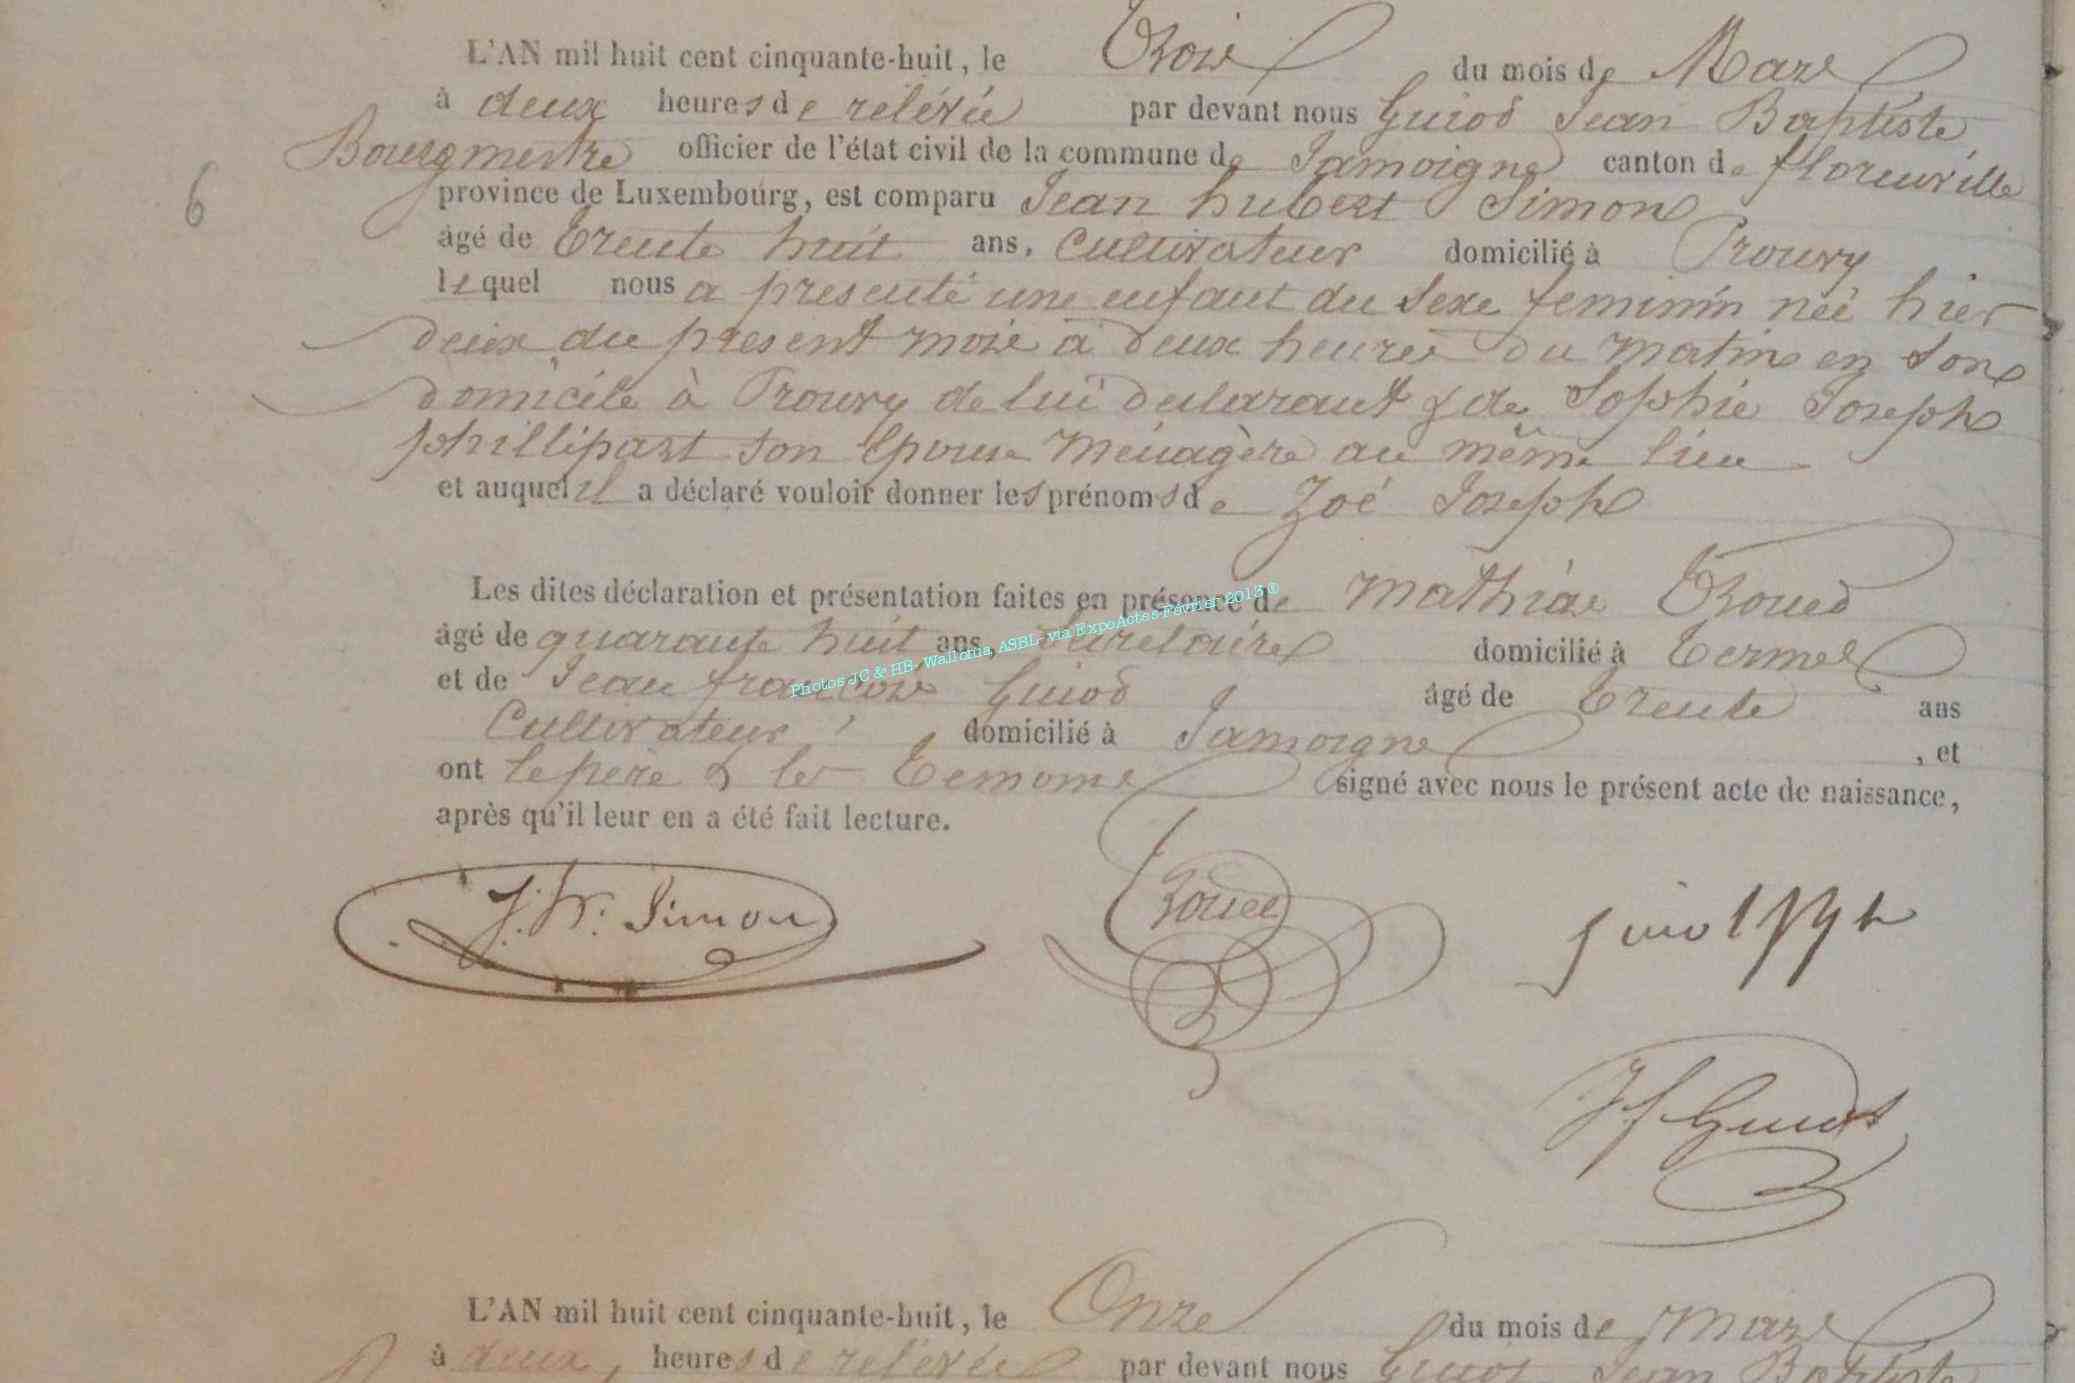 L'AN mil huit cent cinquante-huit, le Trois du mois de Mars
à deux heures de relévée par devant nous Guiot Jean Baptiste
Bourgmestre officier de l'état civil de la commune de Jamoigne canton de florenville
6
province de Luxembourg, est comparu Jean hubert Simon
âgé de trente huit ans, Cultivateur domicilié à Prouvy
lequel nous a presenté une enfant du Sexe feminin née hier
deux du present mois à deux heures du matin en son
domicile à Prouvy de lui declarant & de Sophie Joseph
phillipart son Epouse Ménagère au même lieu
et auquel il a déclaré vouloir donner les prénoms de Zoé Joseph
Les dites déclaration et présentation faites en présence de Mathias
Photos JC & HE- Wallonia, ASBL- via ExpoActes Février 2013 ®
âgé de quarante huit ans, domicilié à Termes
et de Jean françois Guiot âgé de trente ans
Cultivateur domicilié à Jamoigne , et
ont le père & les temoins signé avec nous le présent acte de naissance,
après qu'il leur en a été fait lecture.
J. H. Simon
J f Guiot
L'AN mil huit cent cinquante-huit, le Onze du mois de Mars
à deux heures de relévée par devant nous Guiot Jean Baptiste